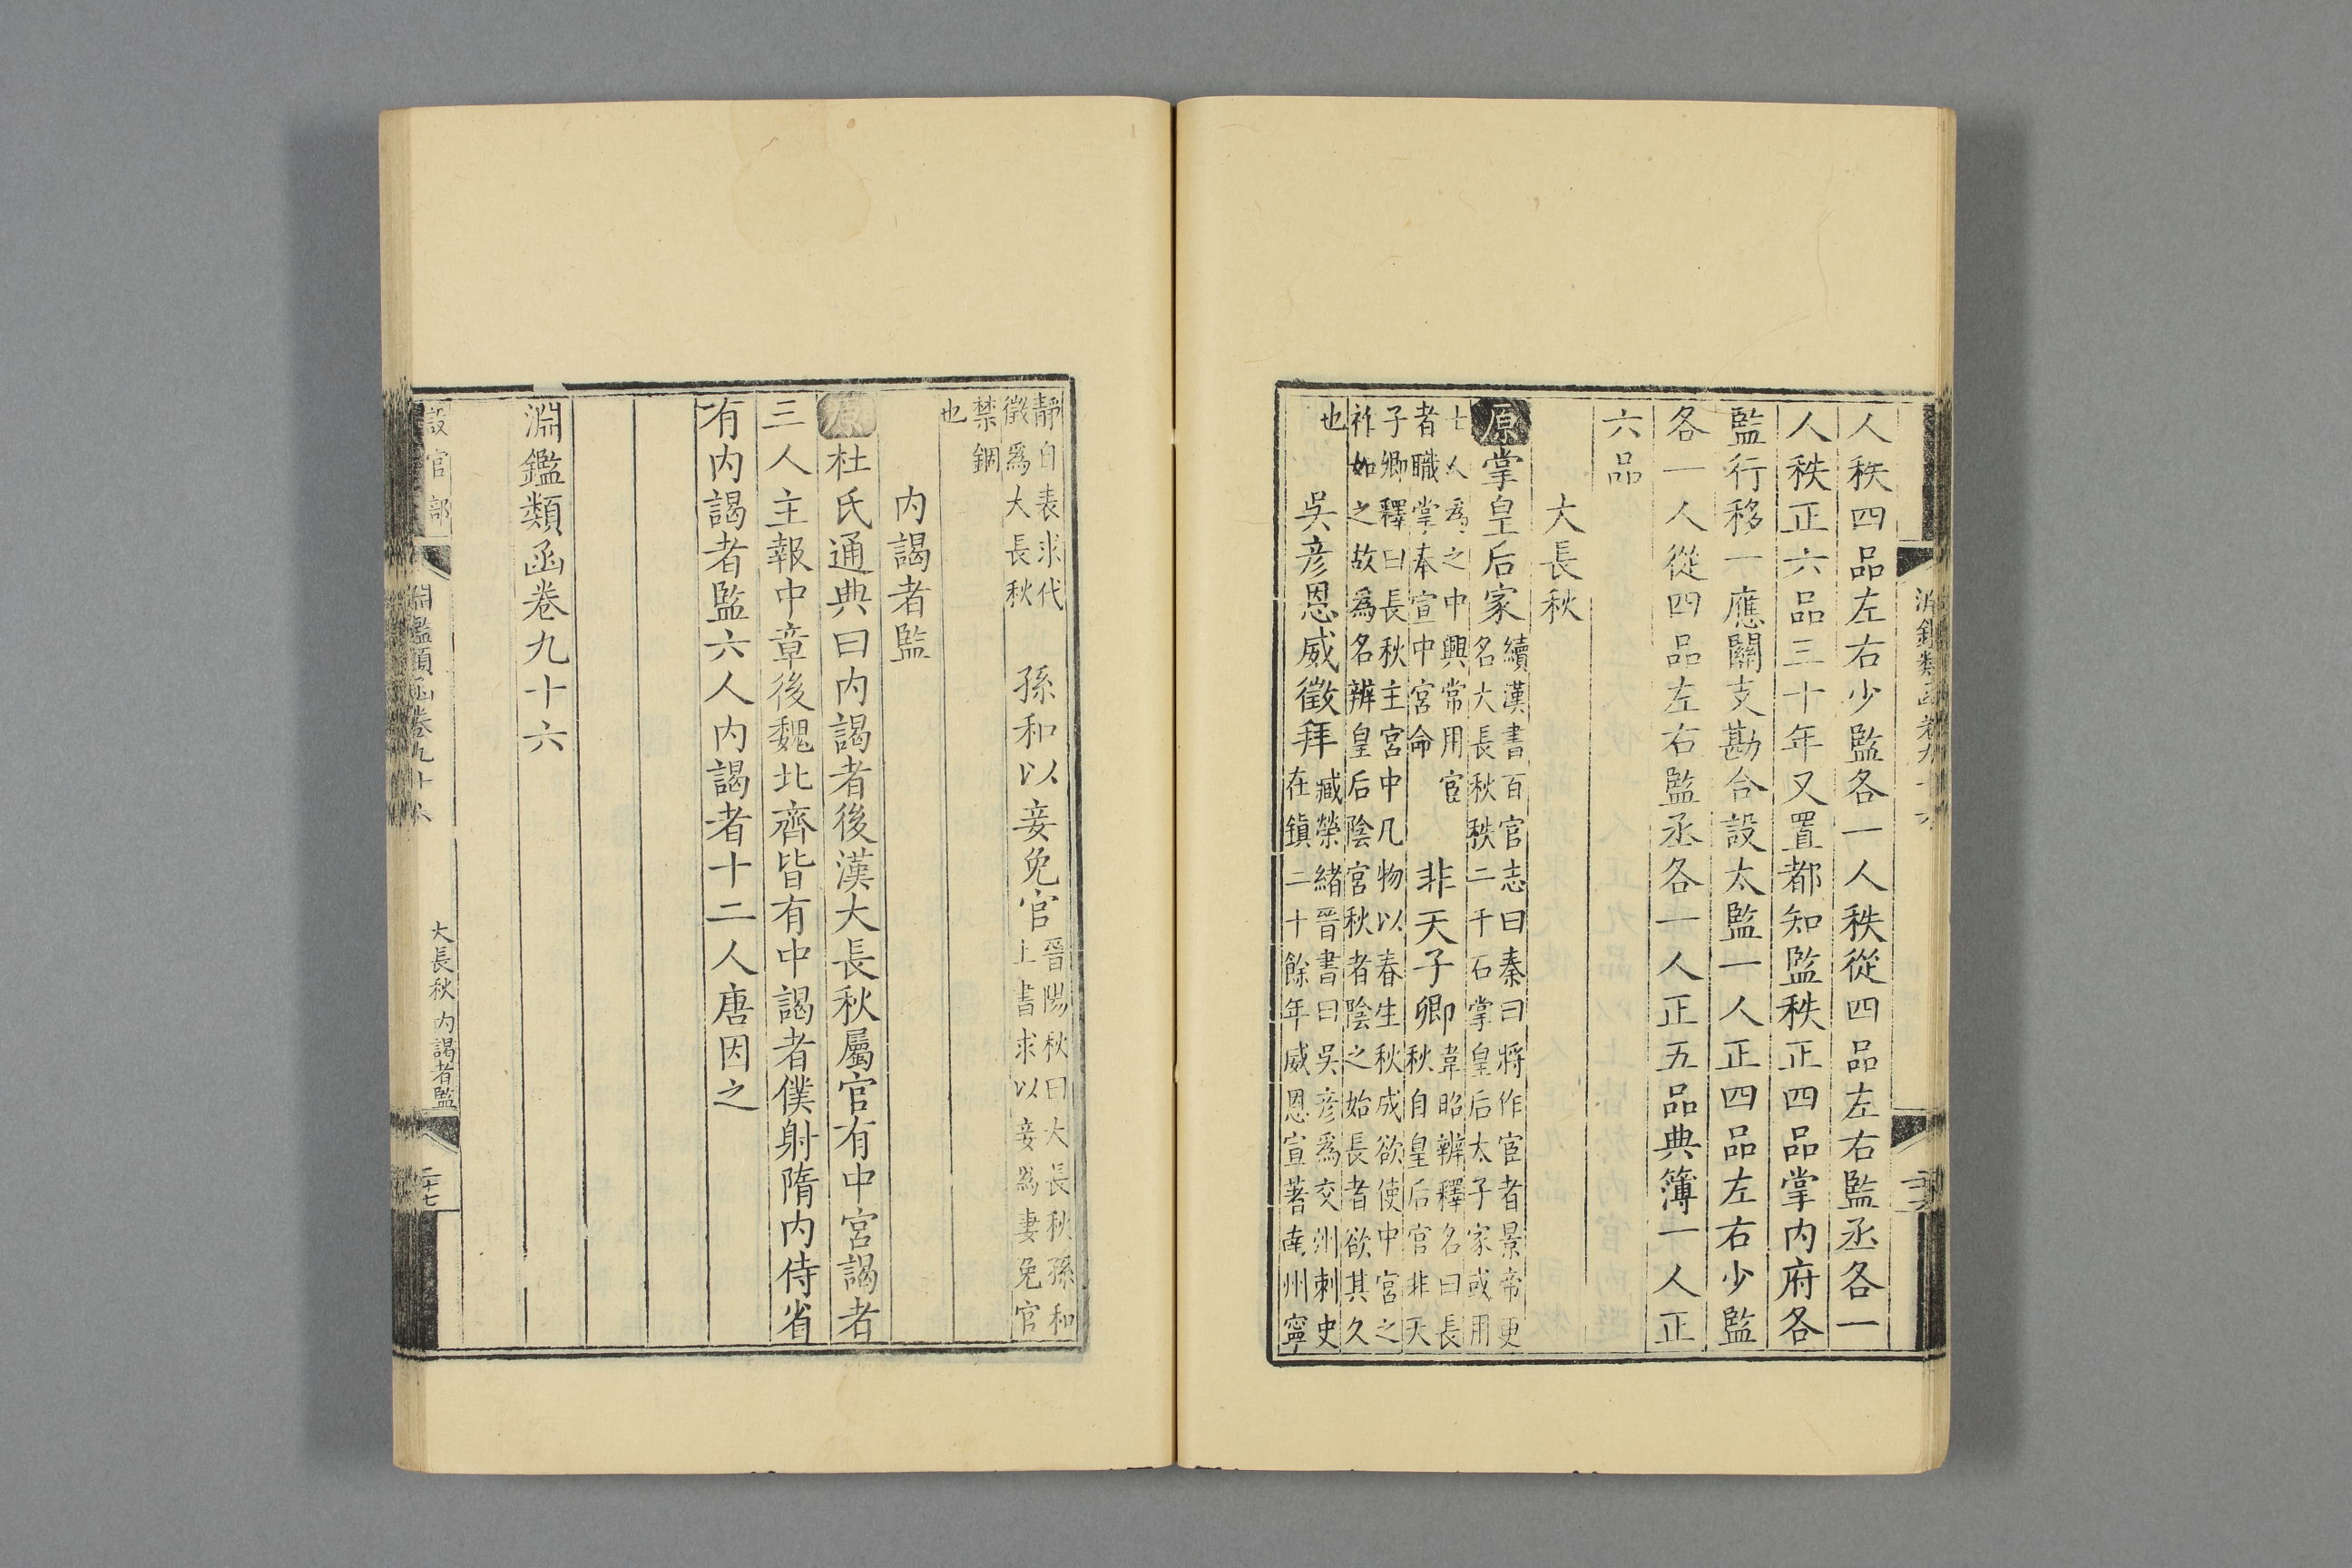 人秩四品左右少監各一人秩從四品左右監丞各一
人秩正六品三十年又置都知監秩正四品掌內府各
監行移一應關支勘合設太監一人正四品左右少監
各一人從四品左右監丞各一人正五品典簿一人正
六品
大長秋
原掌皇后家
續漢書百官志曰秦曰將作宦者景帝更
名大長秋秩二千石掌皇后太子家或用
士人爲之中興常用宦
者職掌奉宣中宮命
非天子卿
韋昭辨釋名曰長
秋自皇后官非天
子卿釋曰長秋主宮中凡物以春生秋成欲使中宮之
祚如之故爲名辨皇后陰宮秋者陰之始長者欲其久
也
吳彥恩威徵拜
臧榮緒晉書曰吳彥爲交州刺史
在鎮二十餘年威恩宣著南州寧
靜自表求代
徵爲大長秋
孫和以妾免官
晉陽秋曰大長秋孫和
上書求以妾爲妻免官
禁錮
也
內謁者監
原杜氏通典曰內謁者後漢大長秋屬官有中宮謁者
三人主報中章後魏北齊皆有中謁者僕射隋內侍省
有內謁者監六人內謁者十二人唐因之
淵鑑類函卷九十六
設官部
淵鑑類函卷九十六
大長秋 內謁者監
二十七